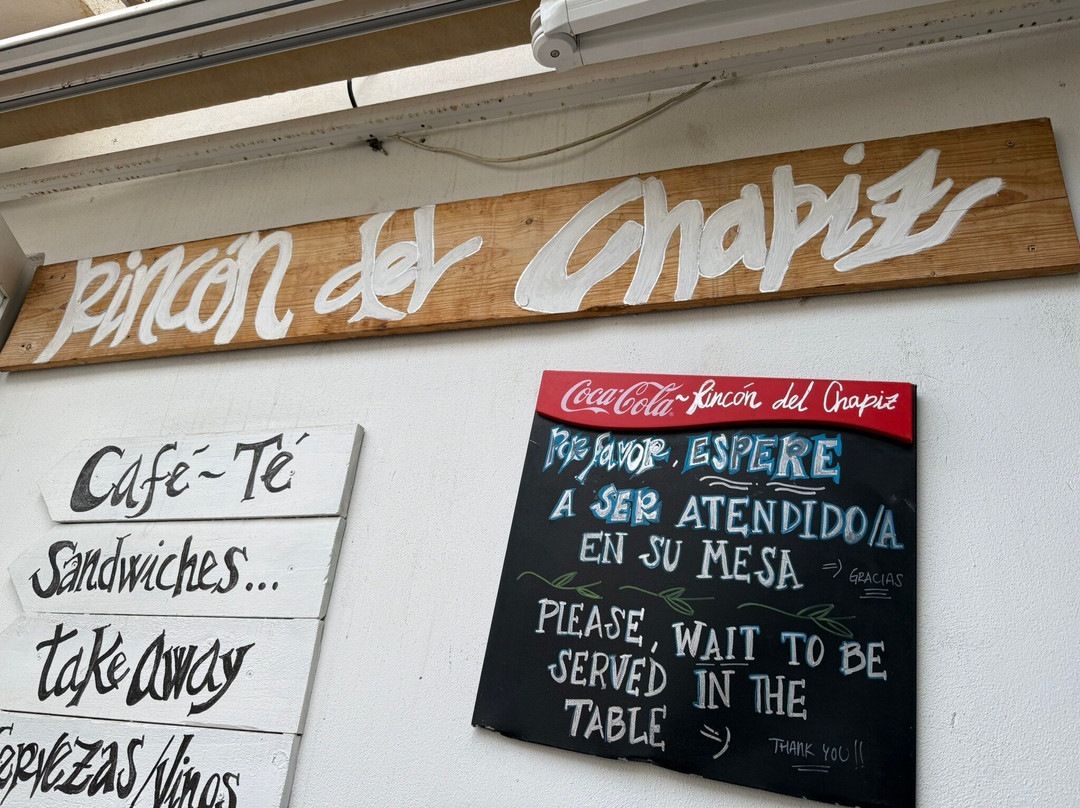 Rincón del Chapiz
Café ~ Té
Sandwiches...
take away
Cervezas/Vinos
Coca-Cola ~ Rincón del Chapiz
Por favor, ESPERE
A SER ATENDIDO/A
EN SU MESA
=) GRACIAS
PLEASE, WAIT TO BE
SERVED IN THE
TABLE =)
THANK YOU!!